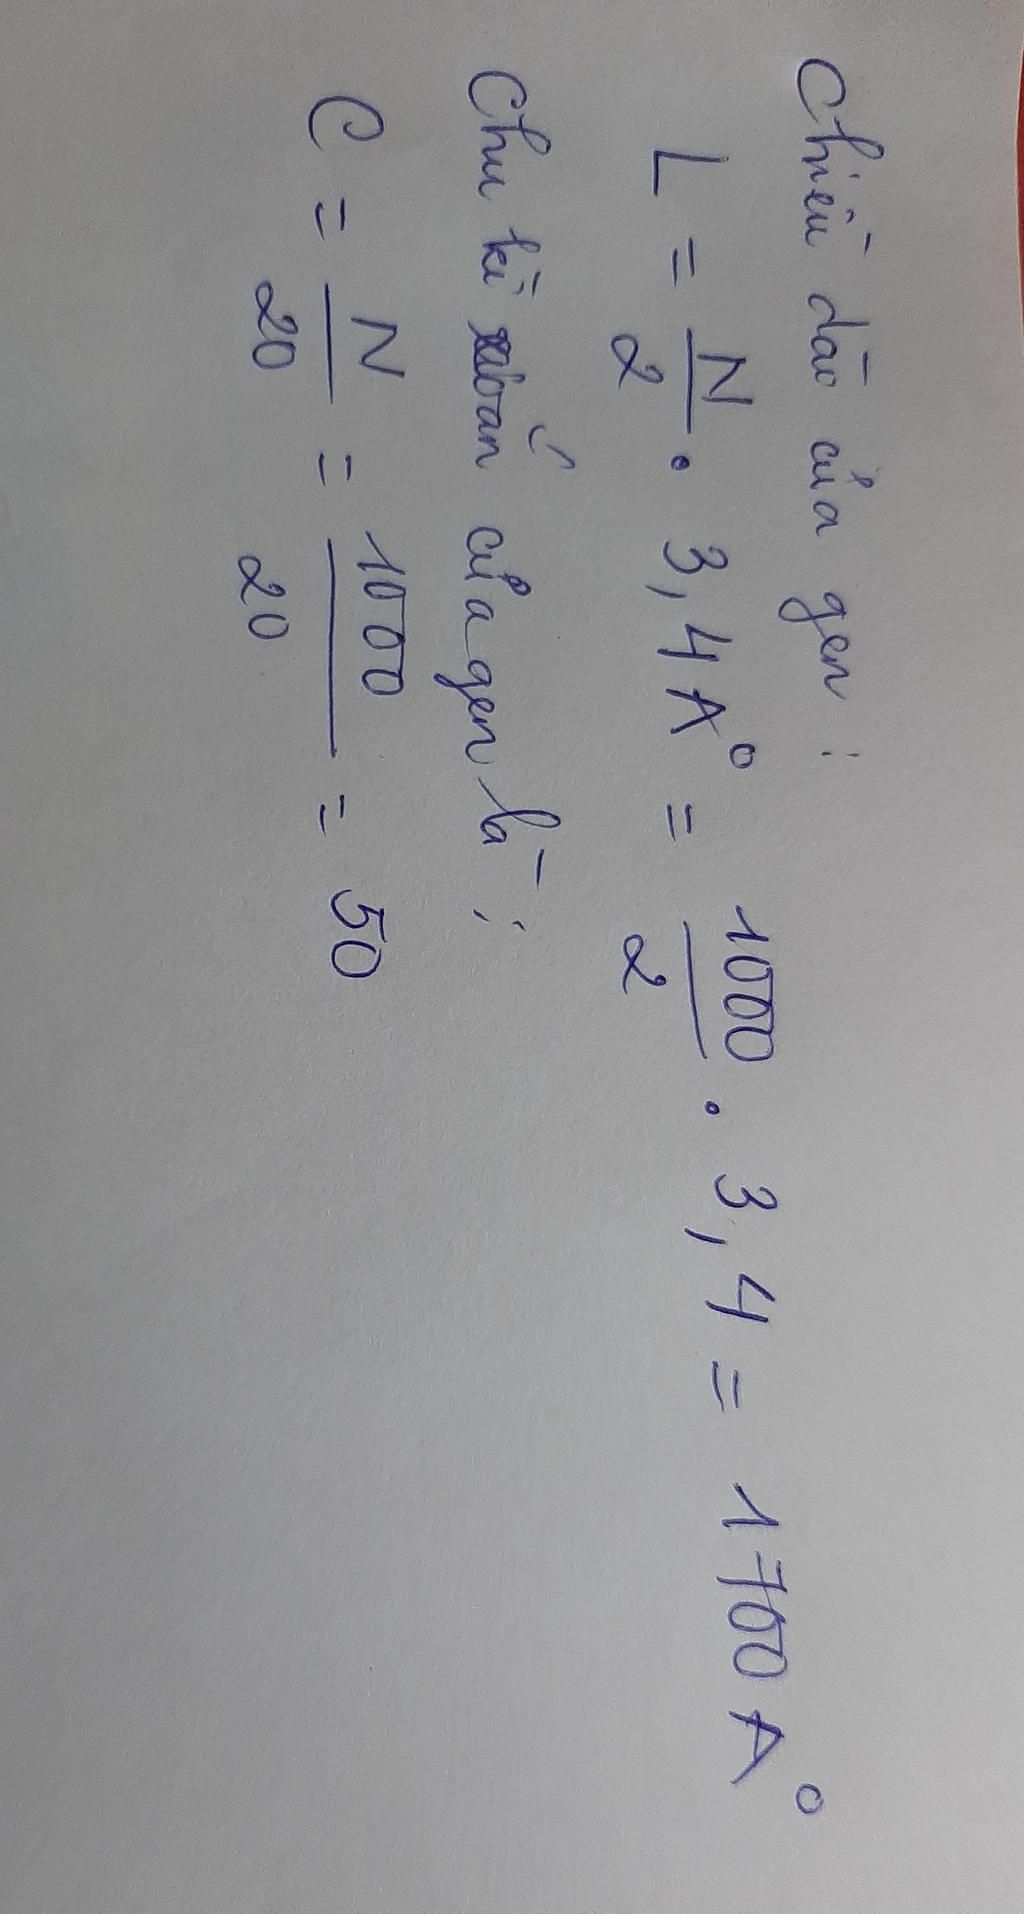 Chiều dài của gen:
L = N/2 . 3,4 A° = 1000/2 . 3,4 = 1700 A°
Chu kì xoắn của gen là:
C = N/20 = 1000/20 = 50